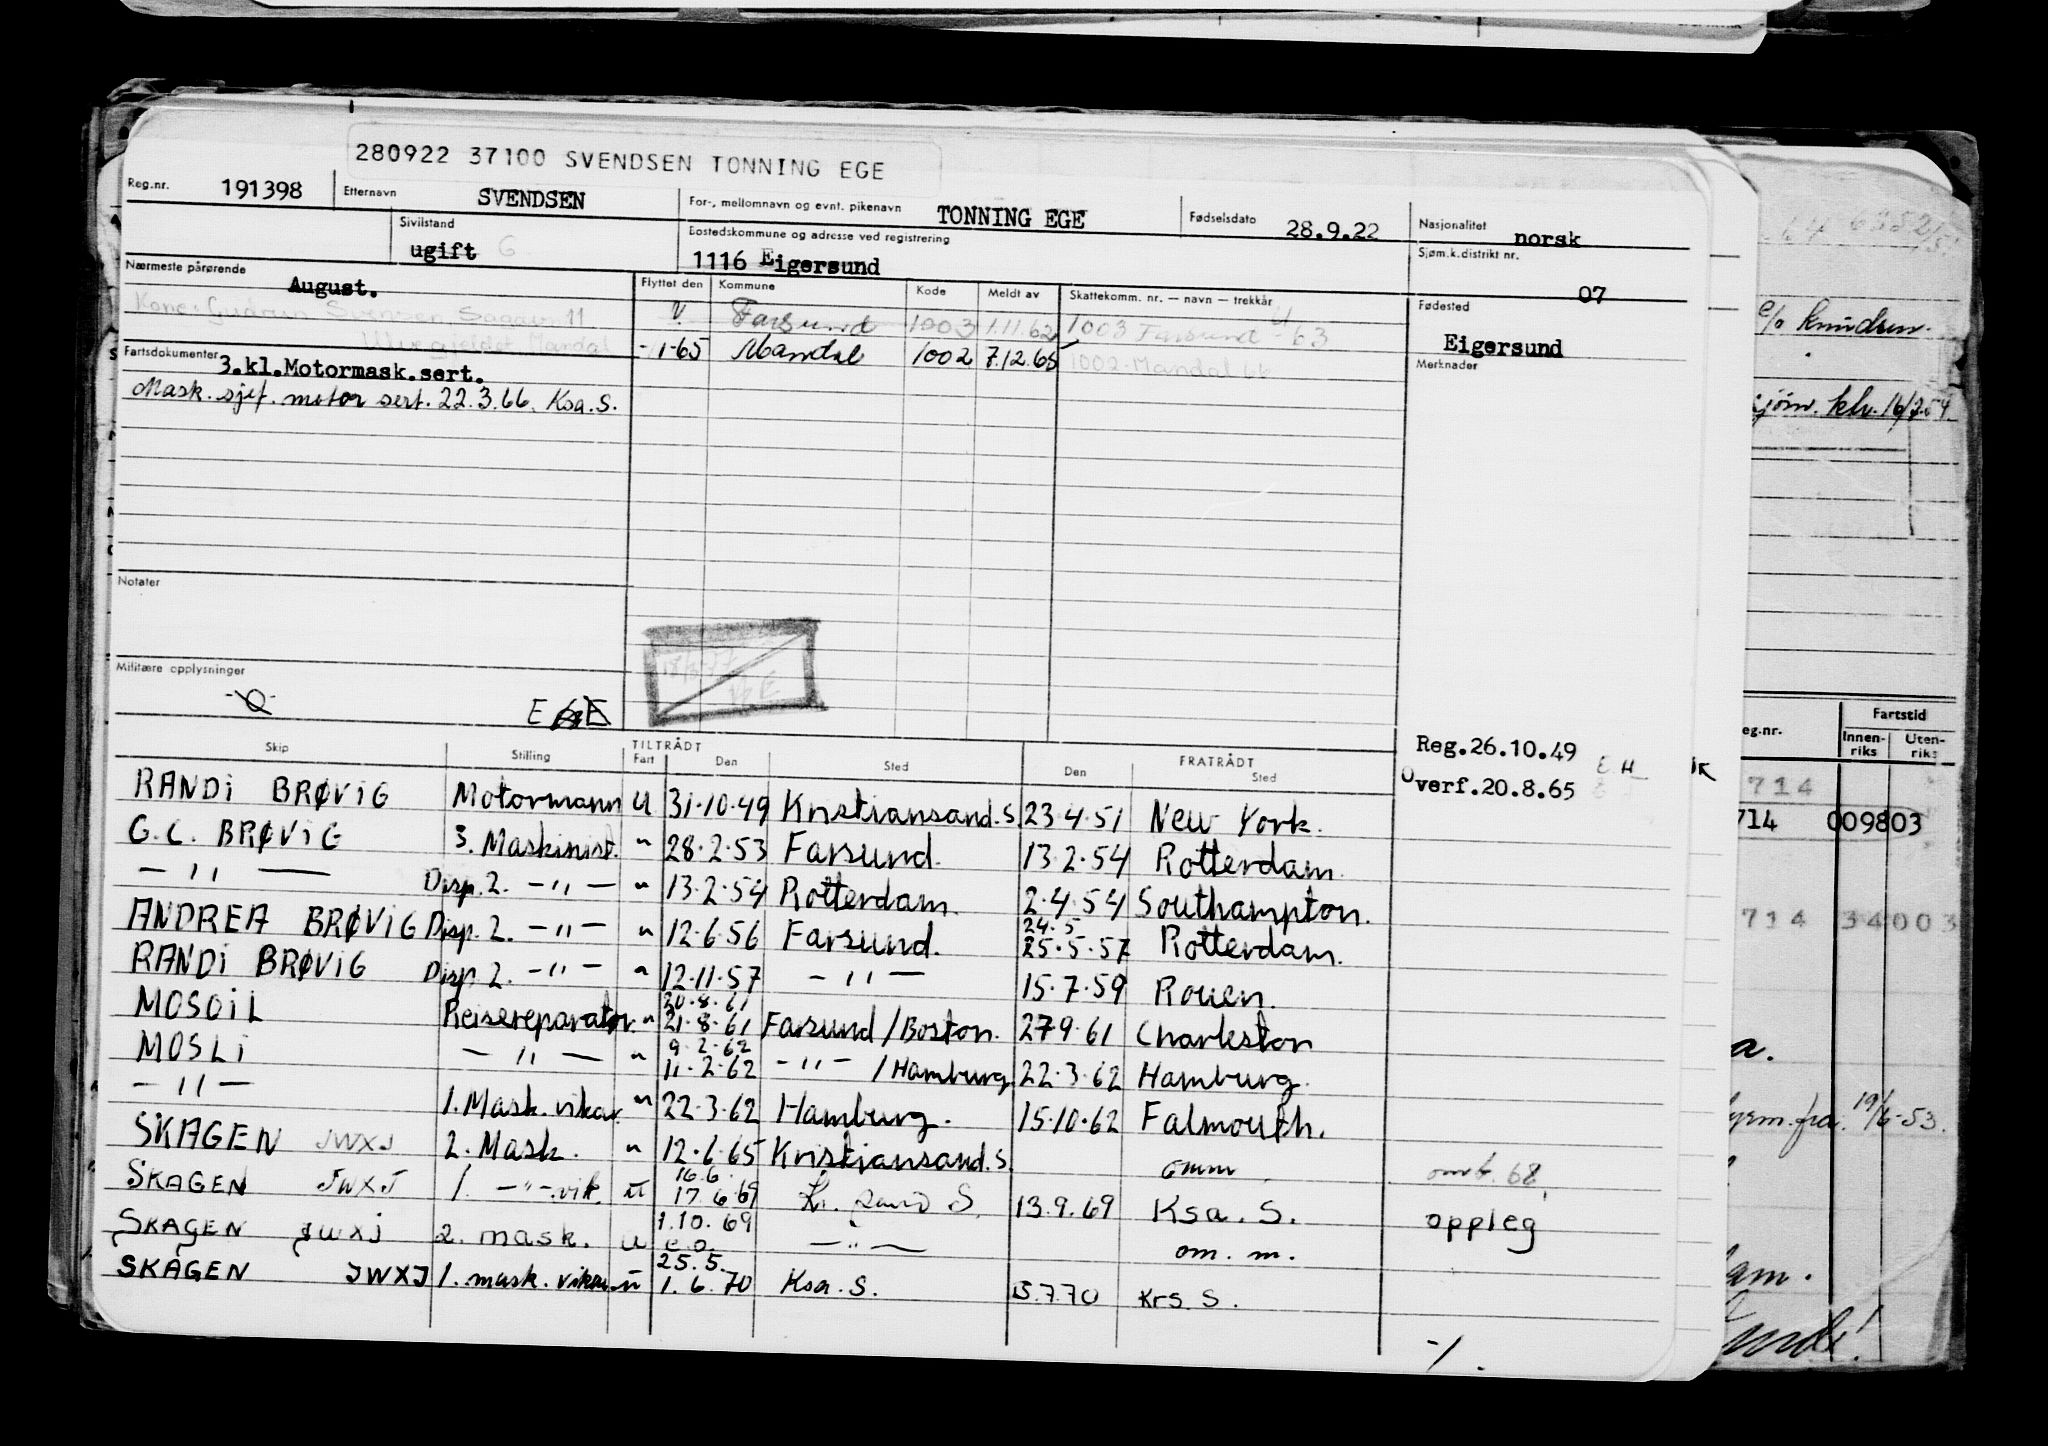 280922 37100 SVENDSEN TONNING EGE
Reg.nr. 191398 Etternavn SVENDSEN For-, mellomnavn og evnt. pikenavn TONNING EGE Fødselsdato 28.9.22 Nasjonalitet norsk
Sivilstand ugift G Bostedskommune og adresse ved registrering 1116 Eigersund Sjøm.k.distrikt nr. 07
Nærmeste pårørende August. Flyttet den Kommune Kode Meldt av Skattekomm. nr. — navn — trekkår Fødested Eigersund
Kone: Gudrun Svensen Sagavn 11
Mandal
V Farsund 1003 1.11.62 1003 Farsund U -63
-/1-65 Mandal 1002 7.12.65 1002 Mandal
Fartsdokumenter 3.kl.Motormask.sert. Merknader
Mask. sjef. motor sert. 22.3.66. Ksa.S.
Notater
Militære opplysninger
-O-
EGE
Reg.26.10.49 E.H
Overf.20.8.65
Skip Stilling TILTRÅDT Fart Den Sted Den FRATRÅDT Sted
RANDI BRØVIG Motormann U 31.10.49 Kristiansand.S. 23.4.51 New York.
G.C. BRØVIG 3. Maskinist. " 28.2.53 Farsund. 13.2.54 Rotterdam.
— " — Disp. 2. — " — " 13.2.54 Rotterdam. 2.4.54 Southampton.
ANDREA BRØVIG Disp. 2. — " — " 12.6.56 Farsund. 24.5 25.5.57 Rotterdam.
RANDI BRØVIG Disp 2. — " — " 12.11.57 — " — 15.7.59 Rouen.
MOSOIL Reisereparatør. " 20.8.61 21.8.61 Farsund/Boston. 27.9.61 Charleston
MOSLI — " — " 9.2.62 11.2.62 — " — /Hamburg. 22.3.62 Hamburg.
— " — 1. Mask. vikar " 22.3.62 Hamburg. 15.10.62 Falmouth.
SKAGEN JWXJ 2. Mask. " 12.6.65 Kristiansand.S. omm omb. 68
SKAGEN JWXJ 1. — " — vik. U 16.6. 17.6.69 Kr. sand S. 13.9.69 Ksa. S. oppleg
SKAGEN JWXJ 2. mask. U 1.10.69 e.o. — " — om. m.
SKAGEN JWXJ 1. mask. vikar U 25.5. 1.6.70 Ksa. S. 5.7.70 Krs. S.
-/.
c/o Knudsen.
klv. 16/2.54.
eg.nr. Fartstid
Innenriks Utenriks
714
714 009803
714 34003
a.
fra 19/6-53.
am.